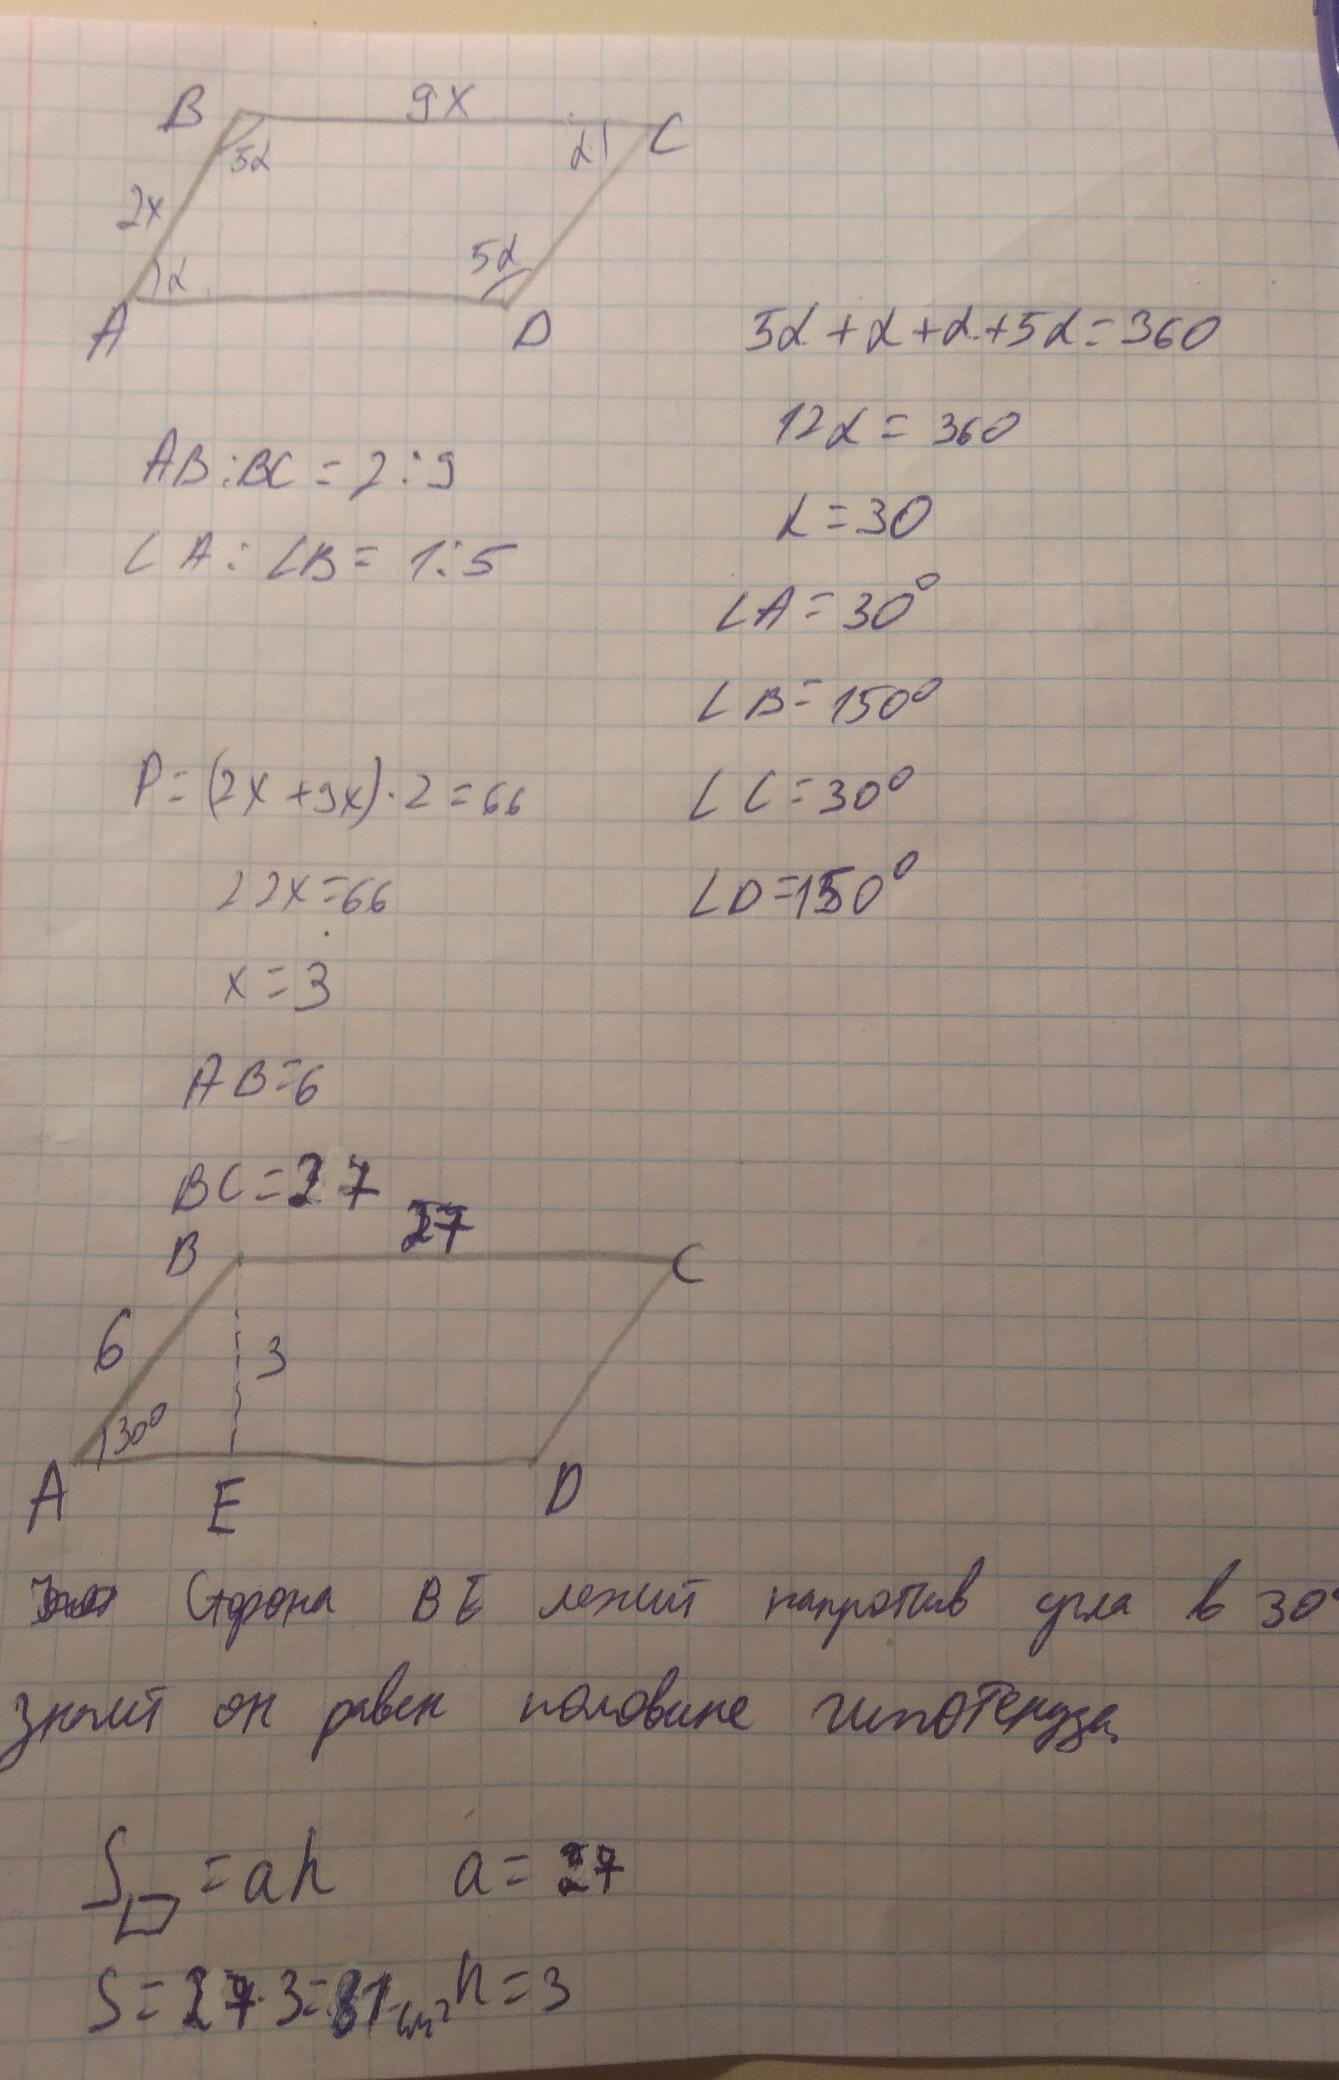 B 9x C
5α α
2x
α 5α
A D
5α + α + α + 5α = 360
12α = 360
α = 30
∠A = 30°
∠B = 150°
∠C = 30°
∠D = 150°
AB : BC = 2 : 9
∠A : ∠B = 1 : 5
P = (2x + 9x) · 2 = 66
22x = 66
x = 3
AB = 6
BC = 27
27
B C
6 3
30°
A E D
Сторона BE лежит напротив угла в 30°
значит он равен половине гипотенузы
S▱ = ah a = 27
S = 27 · 3 = 81 см² h = 3